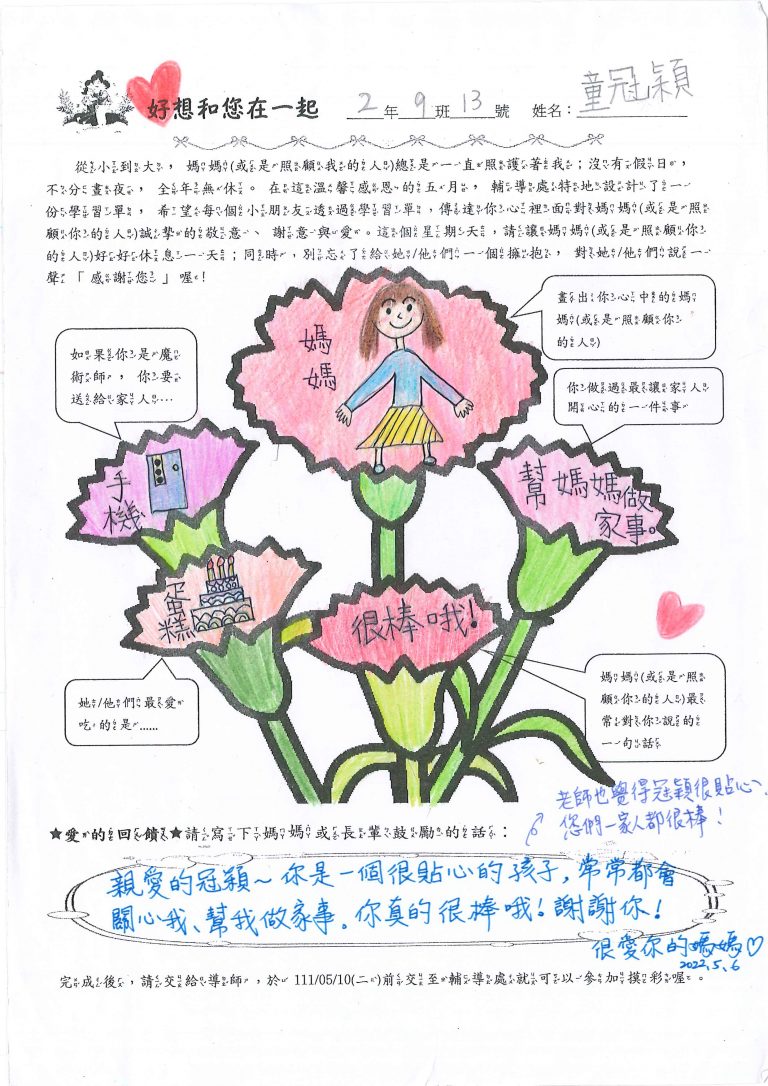 好想和您在一起 2年9班13號 姓名：童冠穎
從小到大，媽媽(或是照顧我的人)總是一直照護著我；沒有假日，
不分晝夜，全年無休。在這溫馨感恩的五月，輔導處特地設計了一
份學習單，希望每個小朋友透過學習單，傳達你心裡面對媽媽(或是照
顧你的人)誠摯的敬意、謝意與愛。這個星期天，請讓媽媽(或是照顧你
的人)好好休息一天；同時，別忘了給她/他們一個擁抱，對她/他們說一
聲「感謝您」喔！
畫出你心中的媽
媽(或是照顧你
的人)
媽
媽
如果你是魔
術師，你要
送給家人…
你做過最讓家人
開心的一件事
手
機
幫媽媽做
家事。
蛋
糕
很棒哦！
她/他們最愛
吃的是……
媽媽(或是照
顧你的人)最
常對你說的
一句話
老師也覺得冠穎很貼心、
您們一家人都很棒！
★愛的回饋★請寫下媽媽或長輩鼓勵的話：
親愛的冠穎～你是一個很貼心的孩子，常常都會
關心我、幫我做家事。你真的很棒哦！謝謝你！
很愛你的媽媽♡
2022.5.6
完成後，請交給導師，於 111/05/10(二)前交至輔導處就可以參加摸彩喔。